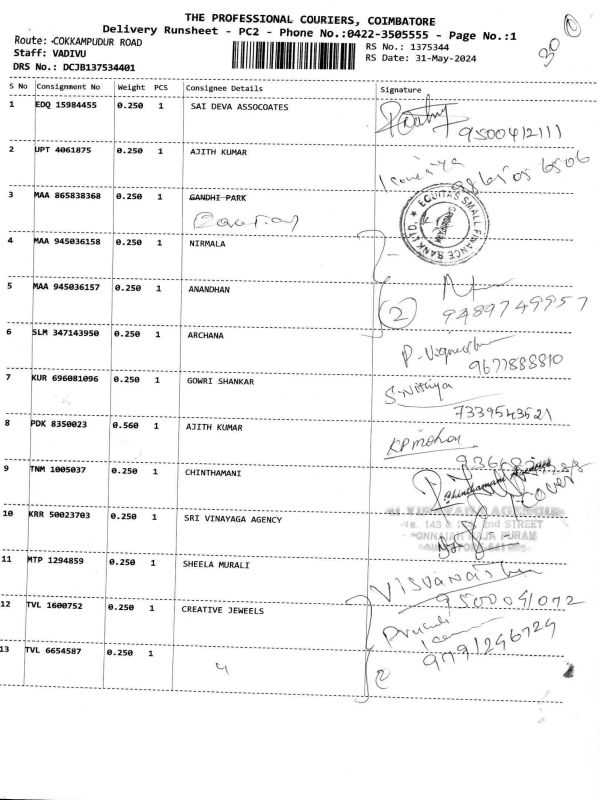 THE PROFESSIONAL COURIERS, COIMBATORE
Delivery Runsheet - PC2 - Phone No.:0422-3505555 - Page No.:1
Route: COKKAMPUDUR ROAD
RS No.: 1375344
Staff: VADIVU
RS Date: 31-May-2024
DRS No.: DCJB137534401
30
S No Consignment No Weight PCS Consignee Details Signature
1 EDQ 15984455 0.250 1 SAI DEVA ASSOCOATES
9500412111
2 UPT 4061875 0.250 1 AJITH KUMAR
3 MAA 865838368 0.250 1 GANDHI PARK
EQUITAS SMALL FINANCE BANK LTD.
4 MAA 945036158 0.250 1 NIRMALA
5 MAA 945036157 0.250 1 ANANDHAN
2 9489749957
6 SLM 347143950 0.250 1 ARCHANA
P. Vignesh
9677888810
7 KUR 696081096 0.250 1 GOWRI SHANKAR
S. Nithya
7339543521
8 PDK 8350023 0.560 1 AJITH KUMAR
KP mohan
9 TNM 1005037 0.250 1 CHINTHAMANI
Chinthamani Agencies
cover
10 KRR 50023703 0.250 1 SRI VINAYAGA AGENCY
2nd STREET
11 MTP 1294859 0.250 1 SHEELA MURALI
9500041072
12 TVL 1600752 0.250 1 CREATIVE JEWEELS
9791246724
13 TVL 6654587 0.250 1
2